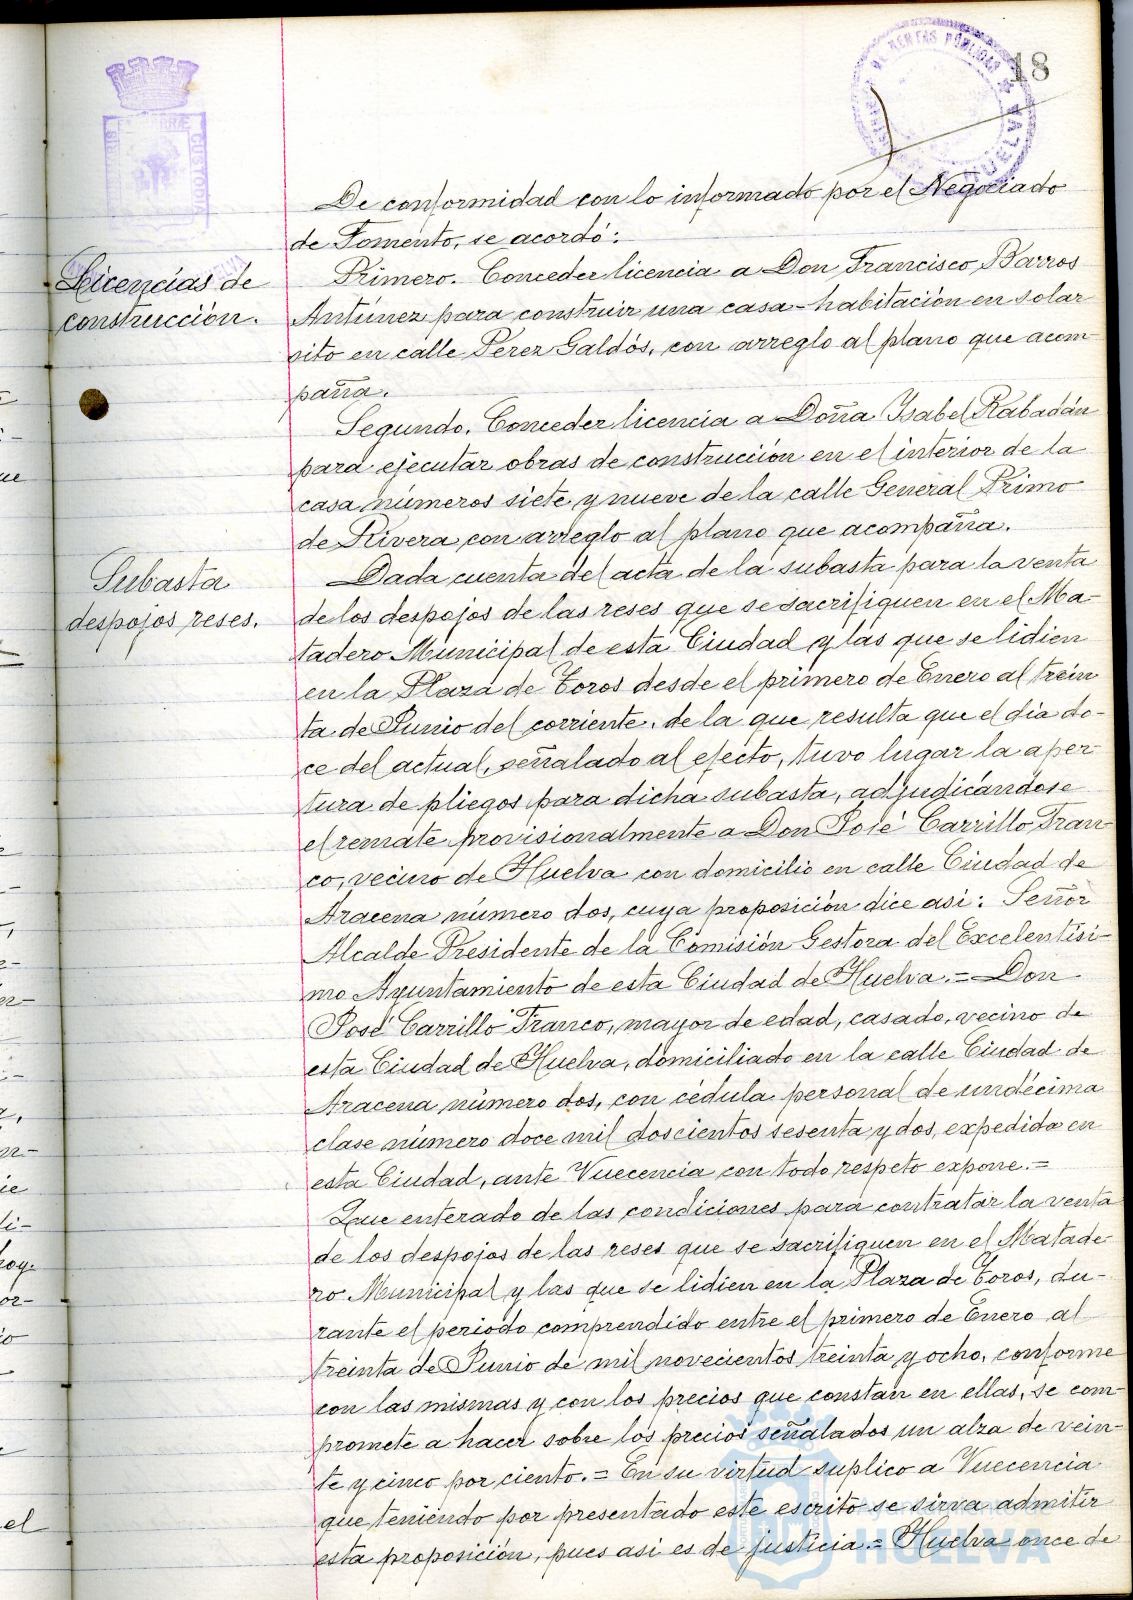 18
De conformidad con lo informado por el Negociado
de Fomento, se acordó:
Licencías de
construcción.
Primero. Conceder licencia a Don Francisco Barros
Antúnez para construir una casa-habitación en solar
sito en calle Perez Galdós, con arreglo al plano que acom-
paña.
Segundo. Conceder licencia a Doña Isabel Rabadán
para ejecutar obras de construcción en el interior de la
casa números siete y nueve de la calle General Primo
de Rivera con arreglo al plano que acompaña.
Subasta
despojos reses.
Dada cuenta del acta de la subasta para la venta
de los despojos de las reses que se sacrifiquen en el Ma-
tadero Municipal de esta Ciudad y las que se lidien
en la Plaza de Toros desde el primero de Enero al trein
ta de Junio del corriente, de la que resulta que el día do-
ce del actual, señalado al efecto, tuvo lugar la aper-
tura de pliegos para dicha subasta, adjudicándose
el remate provisionalmente a Don José Carrillo Fran-
co, vecino de Huelva con domicilio en calle Ciudad de
Aracena número dos, cuya proposición dice así: Señor
Alcalde Presidente de la Comisión Gestora del Excelentísi-
mo Ayuntamiento de esta Ciudad de Huelva.= Don
José Carrillo Franco, mayor de edad, casado, vecino de
esta Ciudad de Huelva, domiciliado en la calle Ciudad de
Aracena número dos, con cédula personal de undécima
clase número doce mil doscientos sesenta y dos, expedida en
esta Ciudad, ante Vuecencia con todo respeto expone.=
Que enterado de las condiciones para contratar la venta
de los despojos de las reses que se sacrifiquen en el Matade-
ro Municipal y las que se lidien en la Plaza de Toros, du-
rante el periodo comprendido entre el primero de Enero al
treinta de Junio de mil novecientos treinta y ocho, conforme
con las mismas y con los precios que constan en ellas, se com-
promete a hacer sobre los precios señalados un alza de vein-
te y cinco por ciento.= En su virtud suplico a Vuecencia
que teniendo por presentado este escrito se sirva admitir
esta proposición, pues asi es de justicia.= Huelva once de
Ayuntamiento de
HUELVA